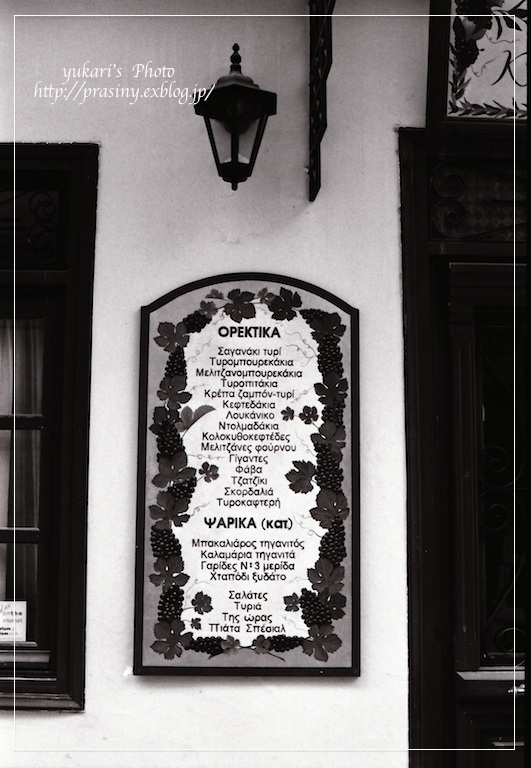 yukari's Photo
http://prasiny.exblog.jp/
K
ΟΡΕΚΤΙΚΑ
Σαγανάκι τυρί
Τυρομπουρεκάκια
Μελιτζανομπουρεκάκια
Τυροπιτάκια
Κρέπα ζαμπόν-τυρί
Κεφτεδάκια
Λουκάνικο
Ντολμαδάκια
Κολοκυθοκεφτέδες
Μελιτζάνες φούρνου
Γίγαντες
Φάβα
Τζατζίκι
Σκορδαλιά
Τυροκαφτερή
ΨΑΡΙΚΑ (κατ)
Μπακαλιάρος τηγανιτός
Καλαμάρια τηγανιτά
Γαρίδες Νο 3 μερίδα
Χταπόδι ξυδάτο
Σαλάτες
Τυριά
Της ώρας
Πιάτα Σπέσιαλ